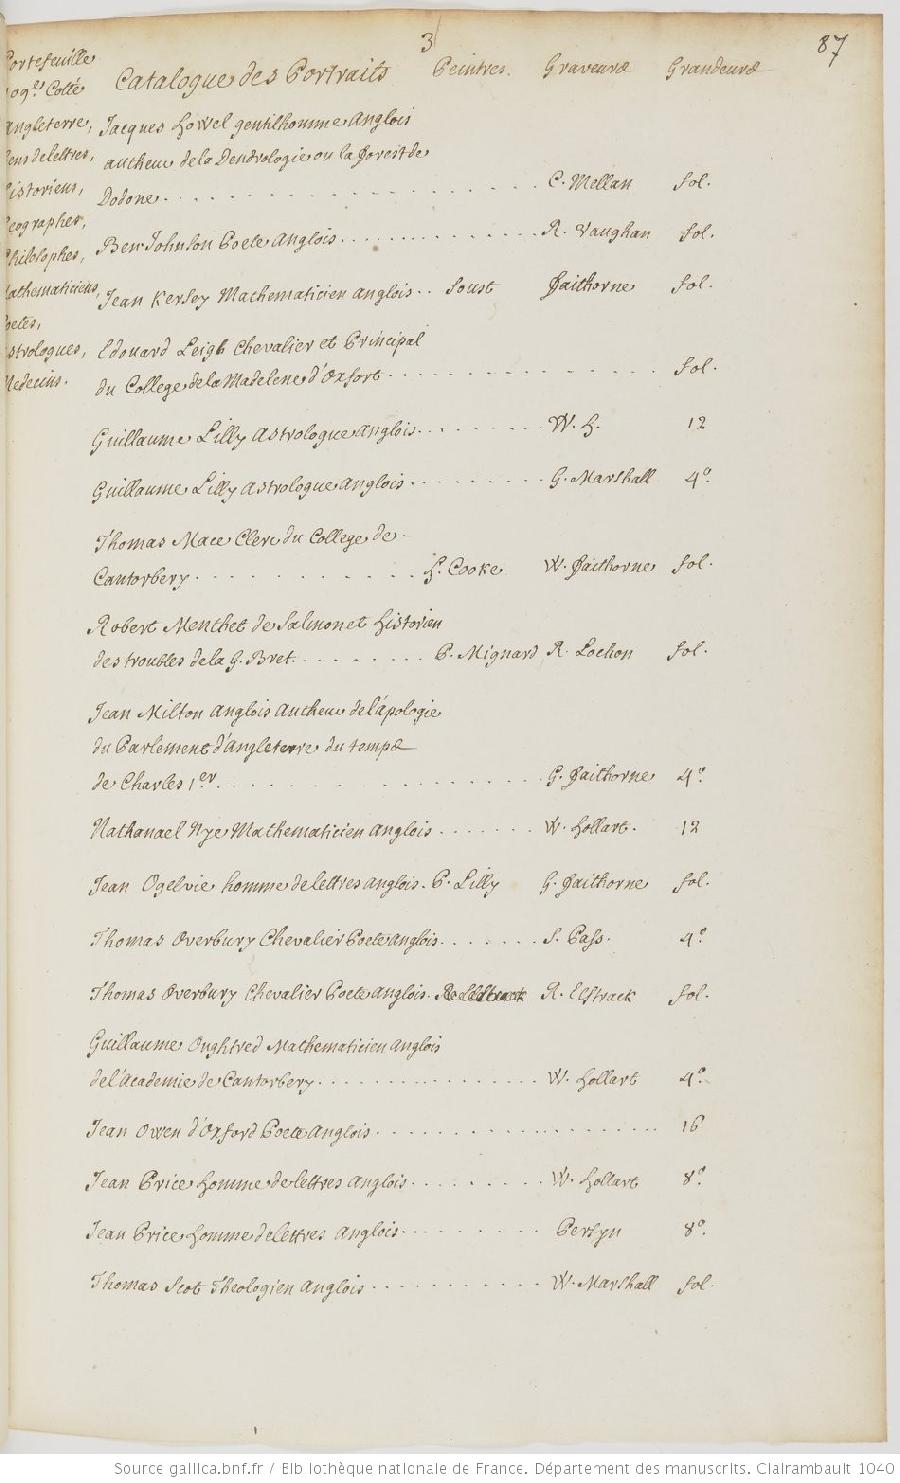 3
87
Portefeuille
109.e Cotté
Angleterre,
Gens de lettres,
Historiens,
Geographes,
Philosophes,
Mathematiciens,
Poetes,
Astrologues,
Medecins.
Catalogue des Portraits Peintres. Graveurs Grandeurs
Jacques Howel gentilhomme Anglois
autheur de la Dendrologie ou la forest de
Dodone. C. Mellan fol.
Ben Johnson Poete Anglois. R. Vaughan fol.
Jean Kersey Mathematicien anglois.. Soust Faithorne fol.
Edouard Leigh Chevalier et Principal
du College de la Madelene d'Oxfort fol.
Guillaume Lilly Astrologue anglois. W. H. 12
Guillaume Lilly Astrologue anglois. G. Marshall 4.o
Thomas Mace Clerc du College de
Cantorbery. H. Cooke W. Faithorne fol.
Robert Menthet de Salmonet historien
des troubles de la G. Bret. P. Mignard R. Lochon fol.
Jean Milton Anglois Autheur de l'apologie
du Parlement d'Angleterre du temps
de Charles 1.er G. Faithorne 4.o
Nathanael Nye Mathematicien anglois W. Hollart. 12
Jean Ogelvie homme de lettres anglois. P. Lilly G. Faithorne fol.
Thomas Overbury Chevalier Poete Anglois. S. Pass. 4.o
Thomas Overbury Chevalier Poete Anglois. R. Elstrack fol.
Guillaume Oughtred Mathematicien Anglois
de l'Academie de Cantorbery. W. Hollart 4.o
Jean Owen d'Oxford Poete Anglois 16
Jean Price homme de lettres Anglois W. Hollart 8.o
Jean Price homme de lettres Anglois Persyn 8.o
Thomas Scot Theologien Anglois W. Marshall fol.
Source gallica.bnf.fr / Bibliothèque nationale de France. Département des manuscrits. Clairambault 1040